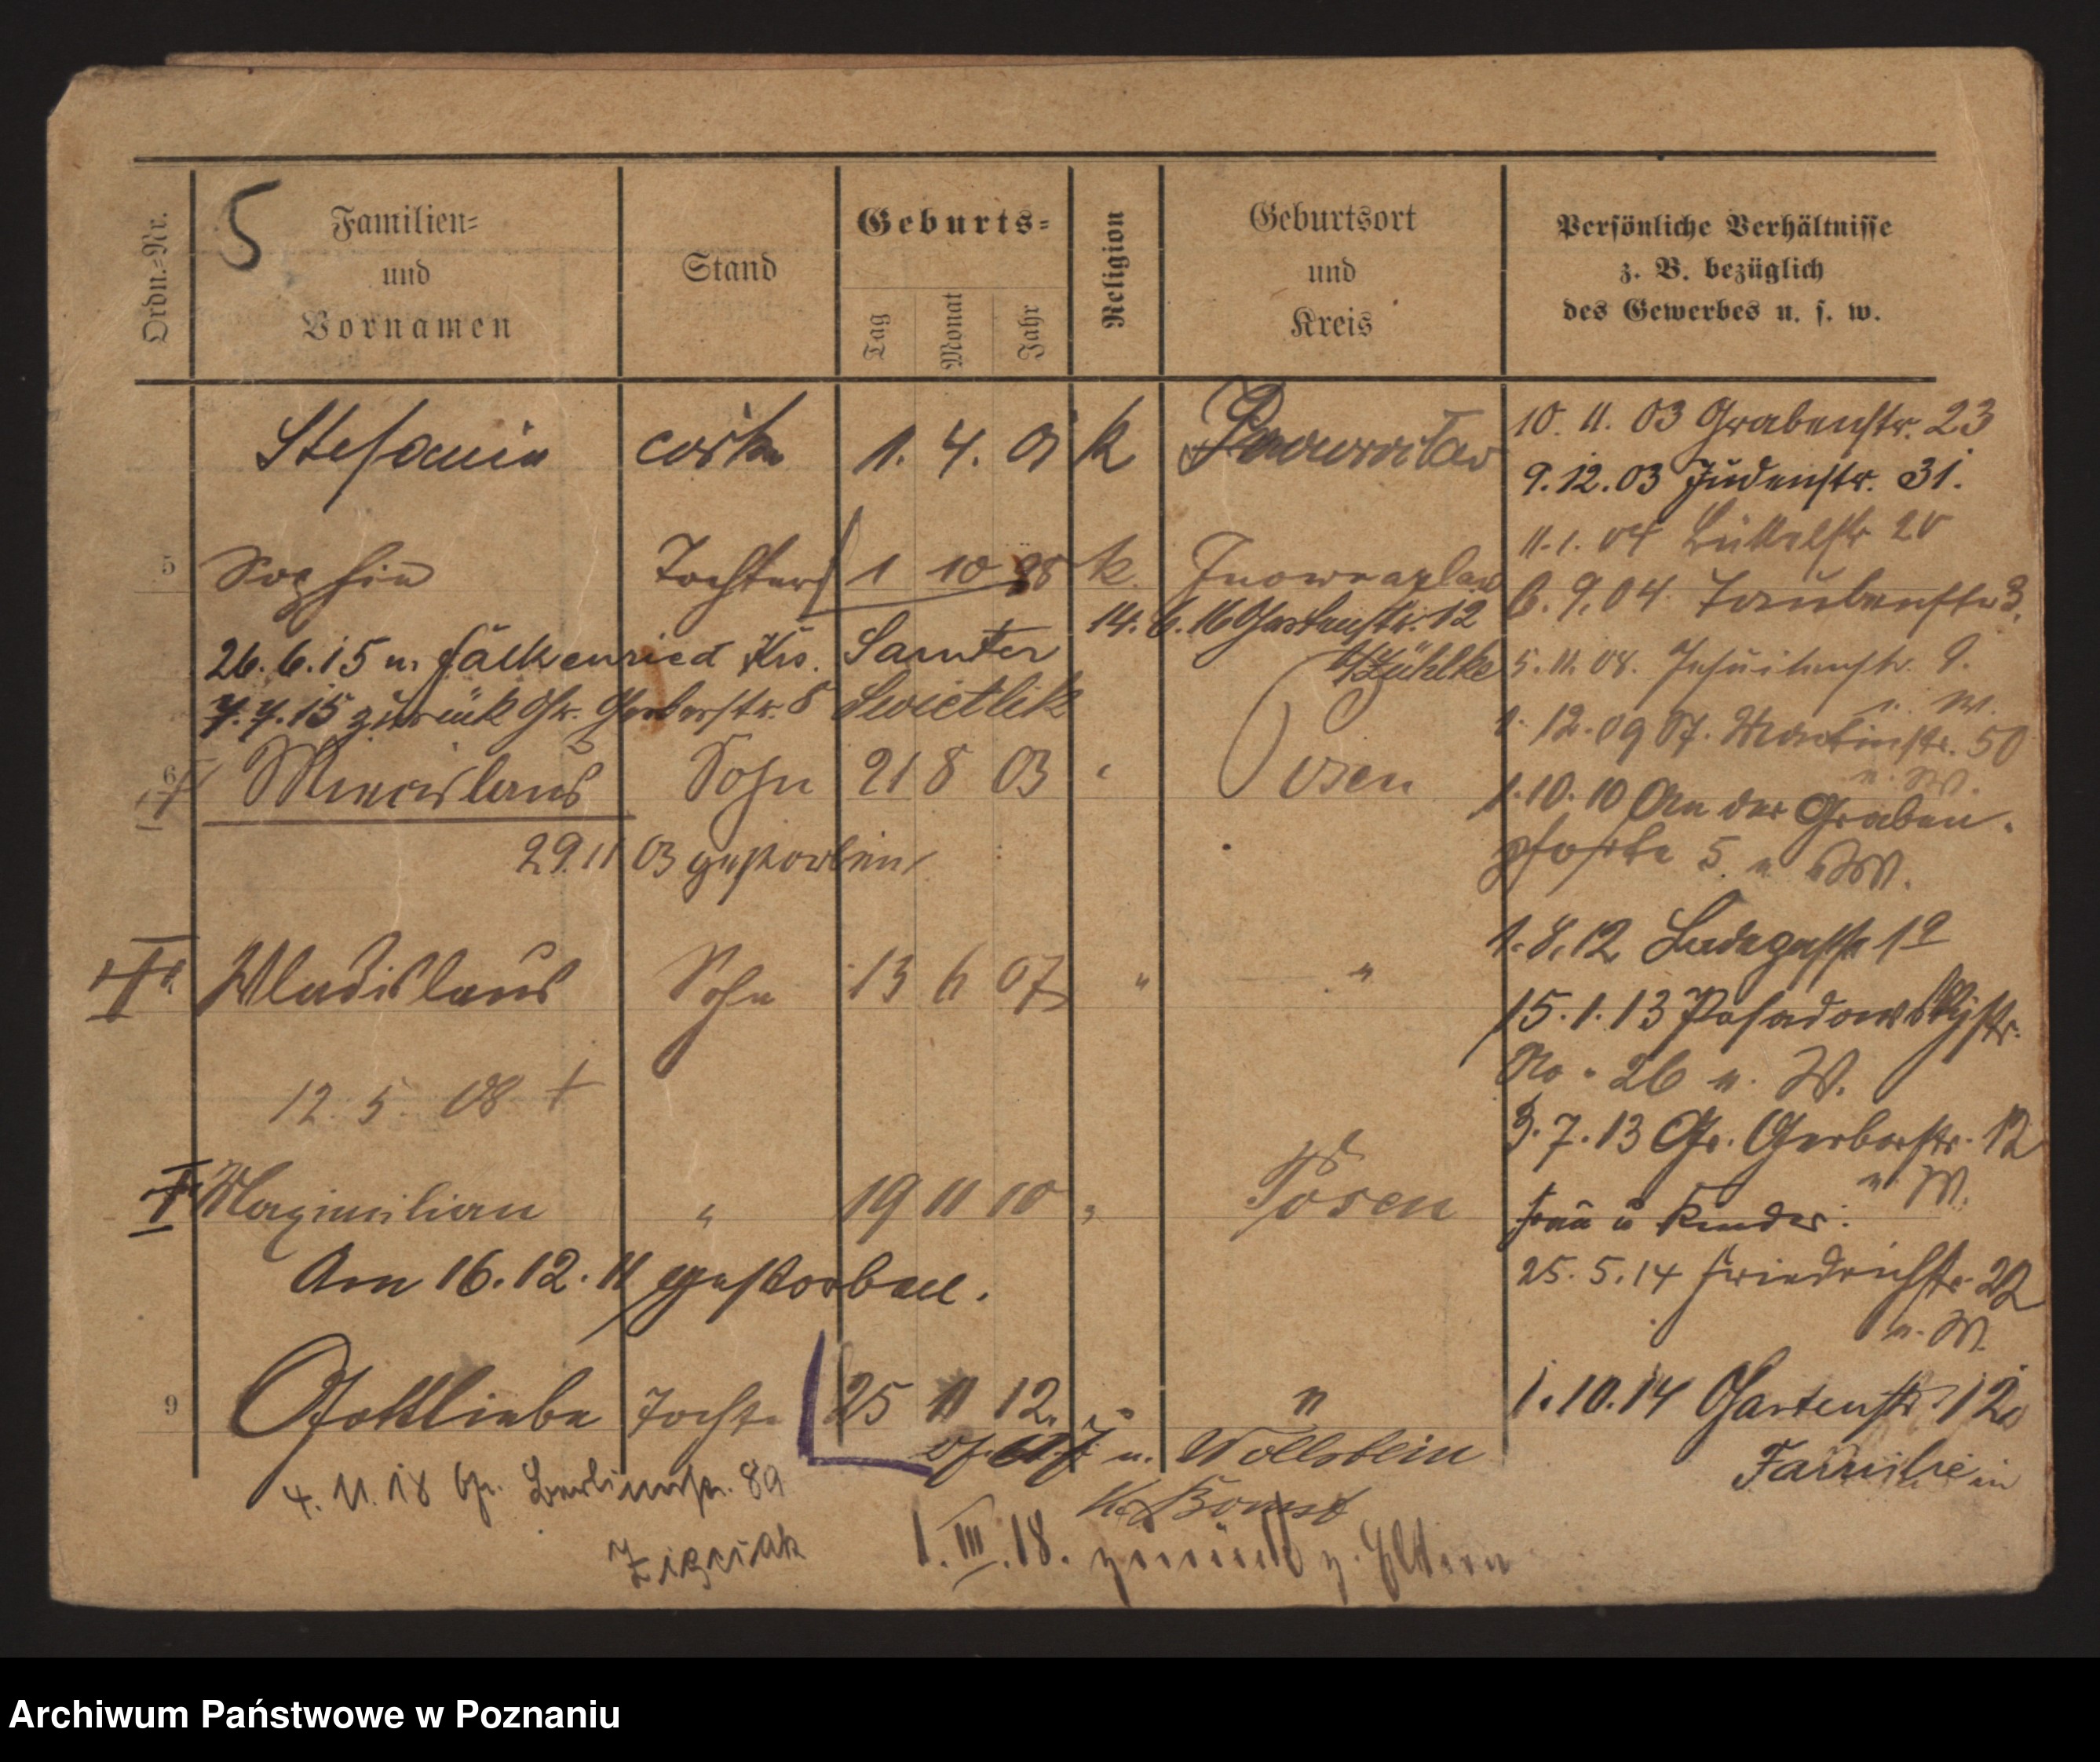 5
Ordn.-Nr.
Familien-
und
Vornamen
Stand
Geburts-
Tag Monat Jahr
Religion
Geburtsort
und
Kreis
Persönliche Verhältnisse
z. B. bezüglich
des Gewerbes u. s. w.
Stefania córka 1. 4. 01 k
5 Sophie Tochter 1 10 98 k. Inowrazlaw
14. 6. 16 Gartenstr. 12
b/Zühlke
26. 6. 15 n. Falkenried Krs. Samter
7. 7. 15 zurück Gr. Gerberstr. 8 Swietlik
6 Miecislaus Sohn 21 8 03 " Posen
29. 11 03 gestorben
Wladislaus Sohn 13 6 07 " "
12. 5. 08 †
Maximilian " 19 11 10 " Posen
Am 16. 12. 11 gestorben.
9 Gottliebe Tocht. 25 11 12. " "
n. Wollstein
Kr. Bomst
4. 11. 18 Gr. Berlinerstr. 89
1. III. 18. zurück z. Eltern
10. 11. 03 Grabenstr. 23
9. 12. 03 Judenstr. 31.
11. 1. 04 Büttelstr 20
6. 9. 04 Taubenstr 3.
5. 11. 08. Jesuitenstr. 9.
u. W.
1. 12. 09 St. Martinstr. 50
u. W.
1. 10. 10 An der Graben-
pforte 5 u. W.
1. 8. 12 Badegasse 1a
15. 1. 13 Posadowskystr.
No. 26 u. W.
3. 7. 13 Gr. Gerberstr. 12
u. W.
Frau u Kinder:
25. 5. 14 Friedrichstr. 22
u. W.
1. 10. 14 Gartenstr. 12
Familie
Archiwum Państwowe w Poznaniu